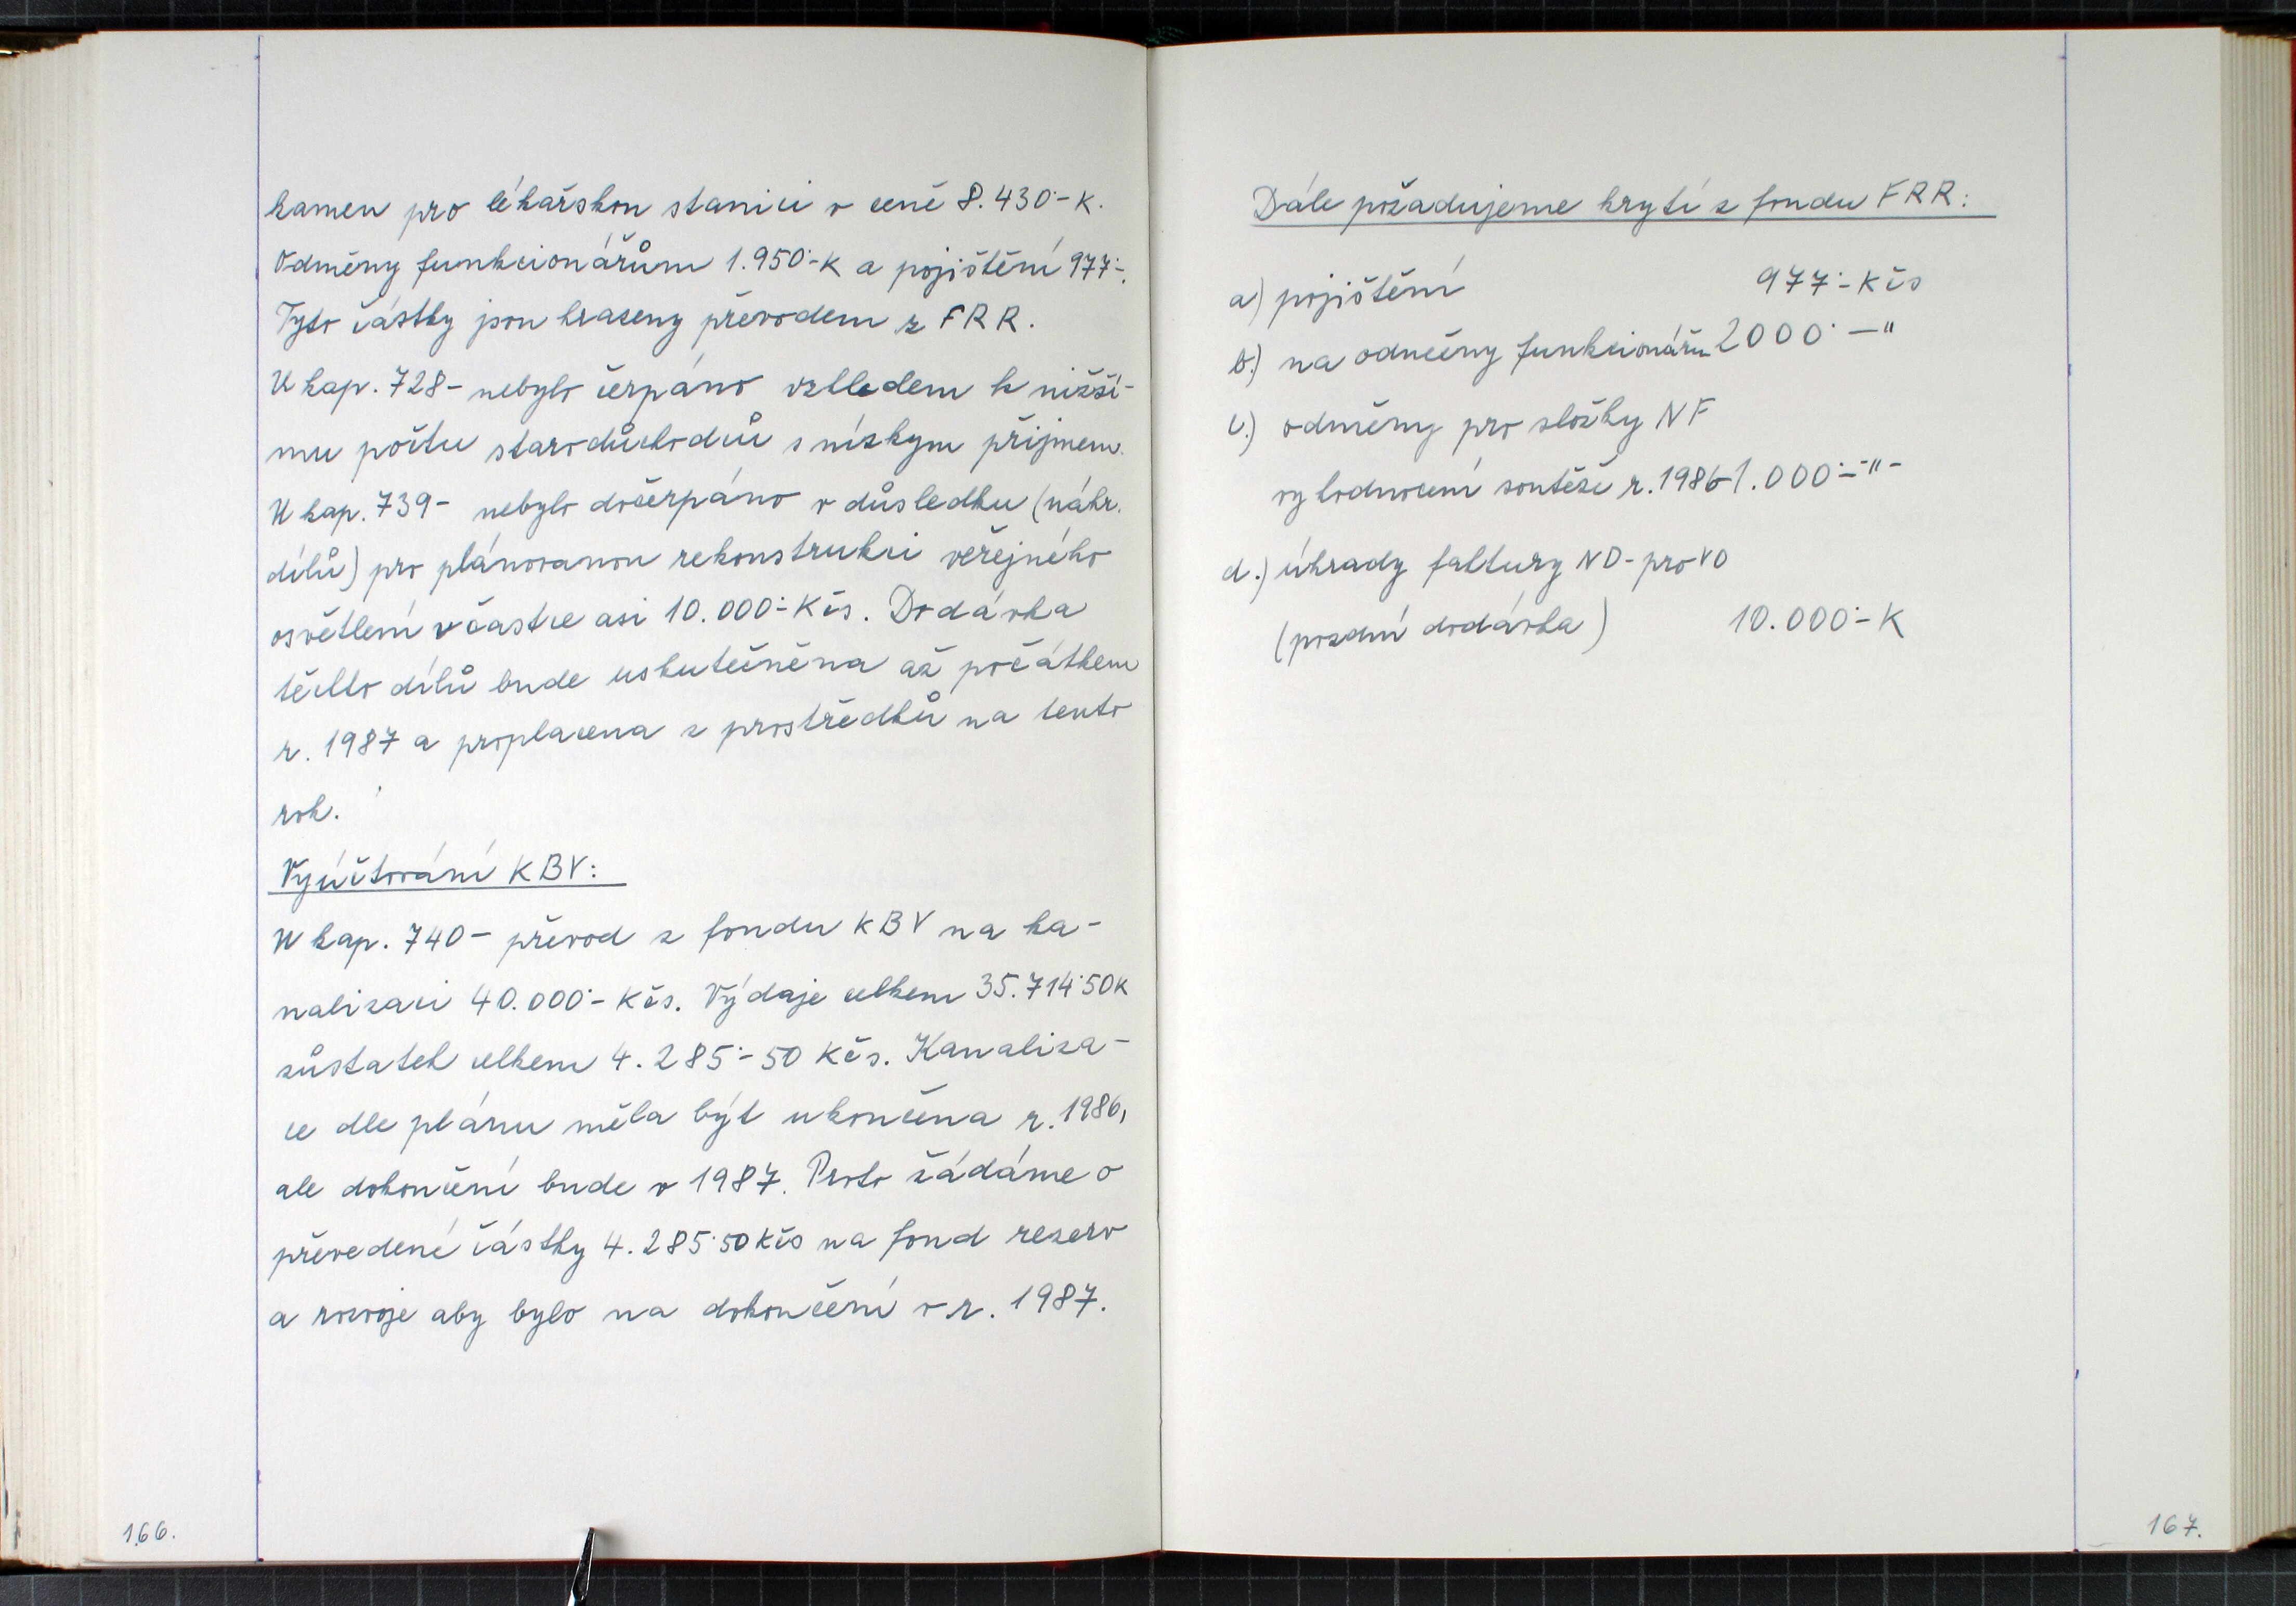 kamen pro lékařskou stanici v ceně 8.430·-K.
Odměny funkcionářům 1.950·-K a pojištění 977·-.
Tyto částky jsou hrazeny převodem z FRR.
U kap. 728- nebylo čerpáno vzhledem k nižší-
mu počtu starodůchodců s nízkym přijmem.
U kap. 739- nebylo dočerpáno v důsledku (náhr.
dílů) pro plánovanou rekonstrukci veřejného
osvětlení v částce asi 10.000·-Kčs. Dodávka
těchto dílů bude uskutečněna až počátkem
r. 1987 a proplacena z prostředků na tento
rok.
Vyúčtování KBV:
U kap. 740- převod z fondu KBV na ka-
nalizaci 40.000·- Kčs. Výdaje celkem 35.714·50K
zůstatek celkem 4.285·-50 Kčs. Kanaliza-
ce dle plánu měla být ukončena r. 1986,
ale dokončení bude v 1987. Proto žádáme o
převedené částky 4.285·50 Kčs na fond rezerv
a rozvoje aby bylo na dokončení v r. 1987.
166.
Dále požadujeme krytí z fondu FRR:
a) pojištění 977·-Kčs
b.) na odměny funkcionářů 2000·—"
c.) odměny pro složky NF
vyhodnocení soutěže r. 1986-1.000·-"-
d.) úhrady faktury ND-pro VO
(pozdní dodávka) 10.000·-K
167.